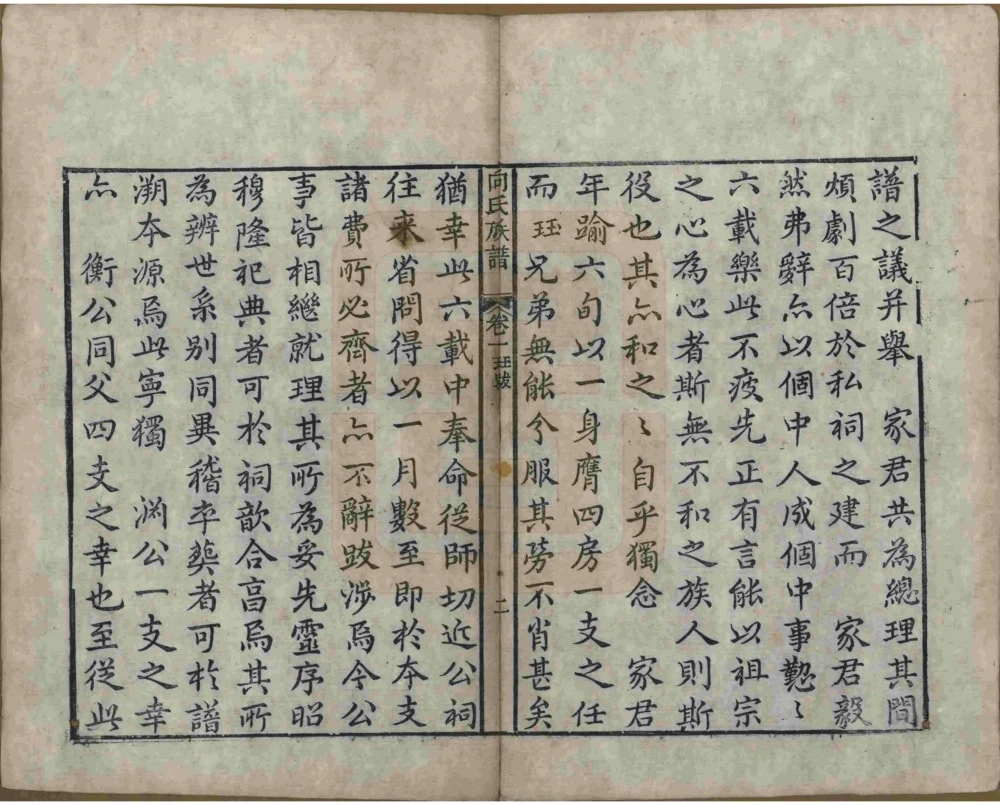 譜之議并舉　家君共為總理其間
煩劇百倍於私祠之建而　家君毅
然弗辭亦以個中人成個中事懃〻
六載樂此不疲先正有言能以祖宗
之心為心者斯無不和之族人則斯
役也其亦和之〻自乎獨念　家君
年踰六旬以一身膺四房一支之任
而珏兄弟無能今服其勞不肖甚矣
向氏族譜　卷一　珏跋　二
猶幸此六載中奉命從師切近公祠
往來省問得以一月數至即於本支
諸費所必齊者亦不辭跋涉焉今公
事皆相繼就理其所為妥先靈序昭
穆隆祀典者可於祠歆合亯焉其所
為辨世系别同異稽卒葬者可於譜
溯本源焉此寧獨　渊公一支之幸
亦　衡公同父四支之幸也至從此